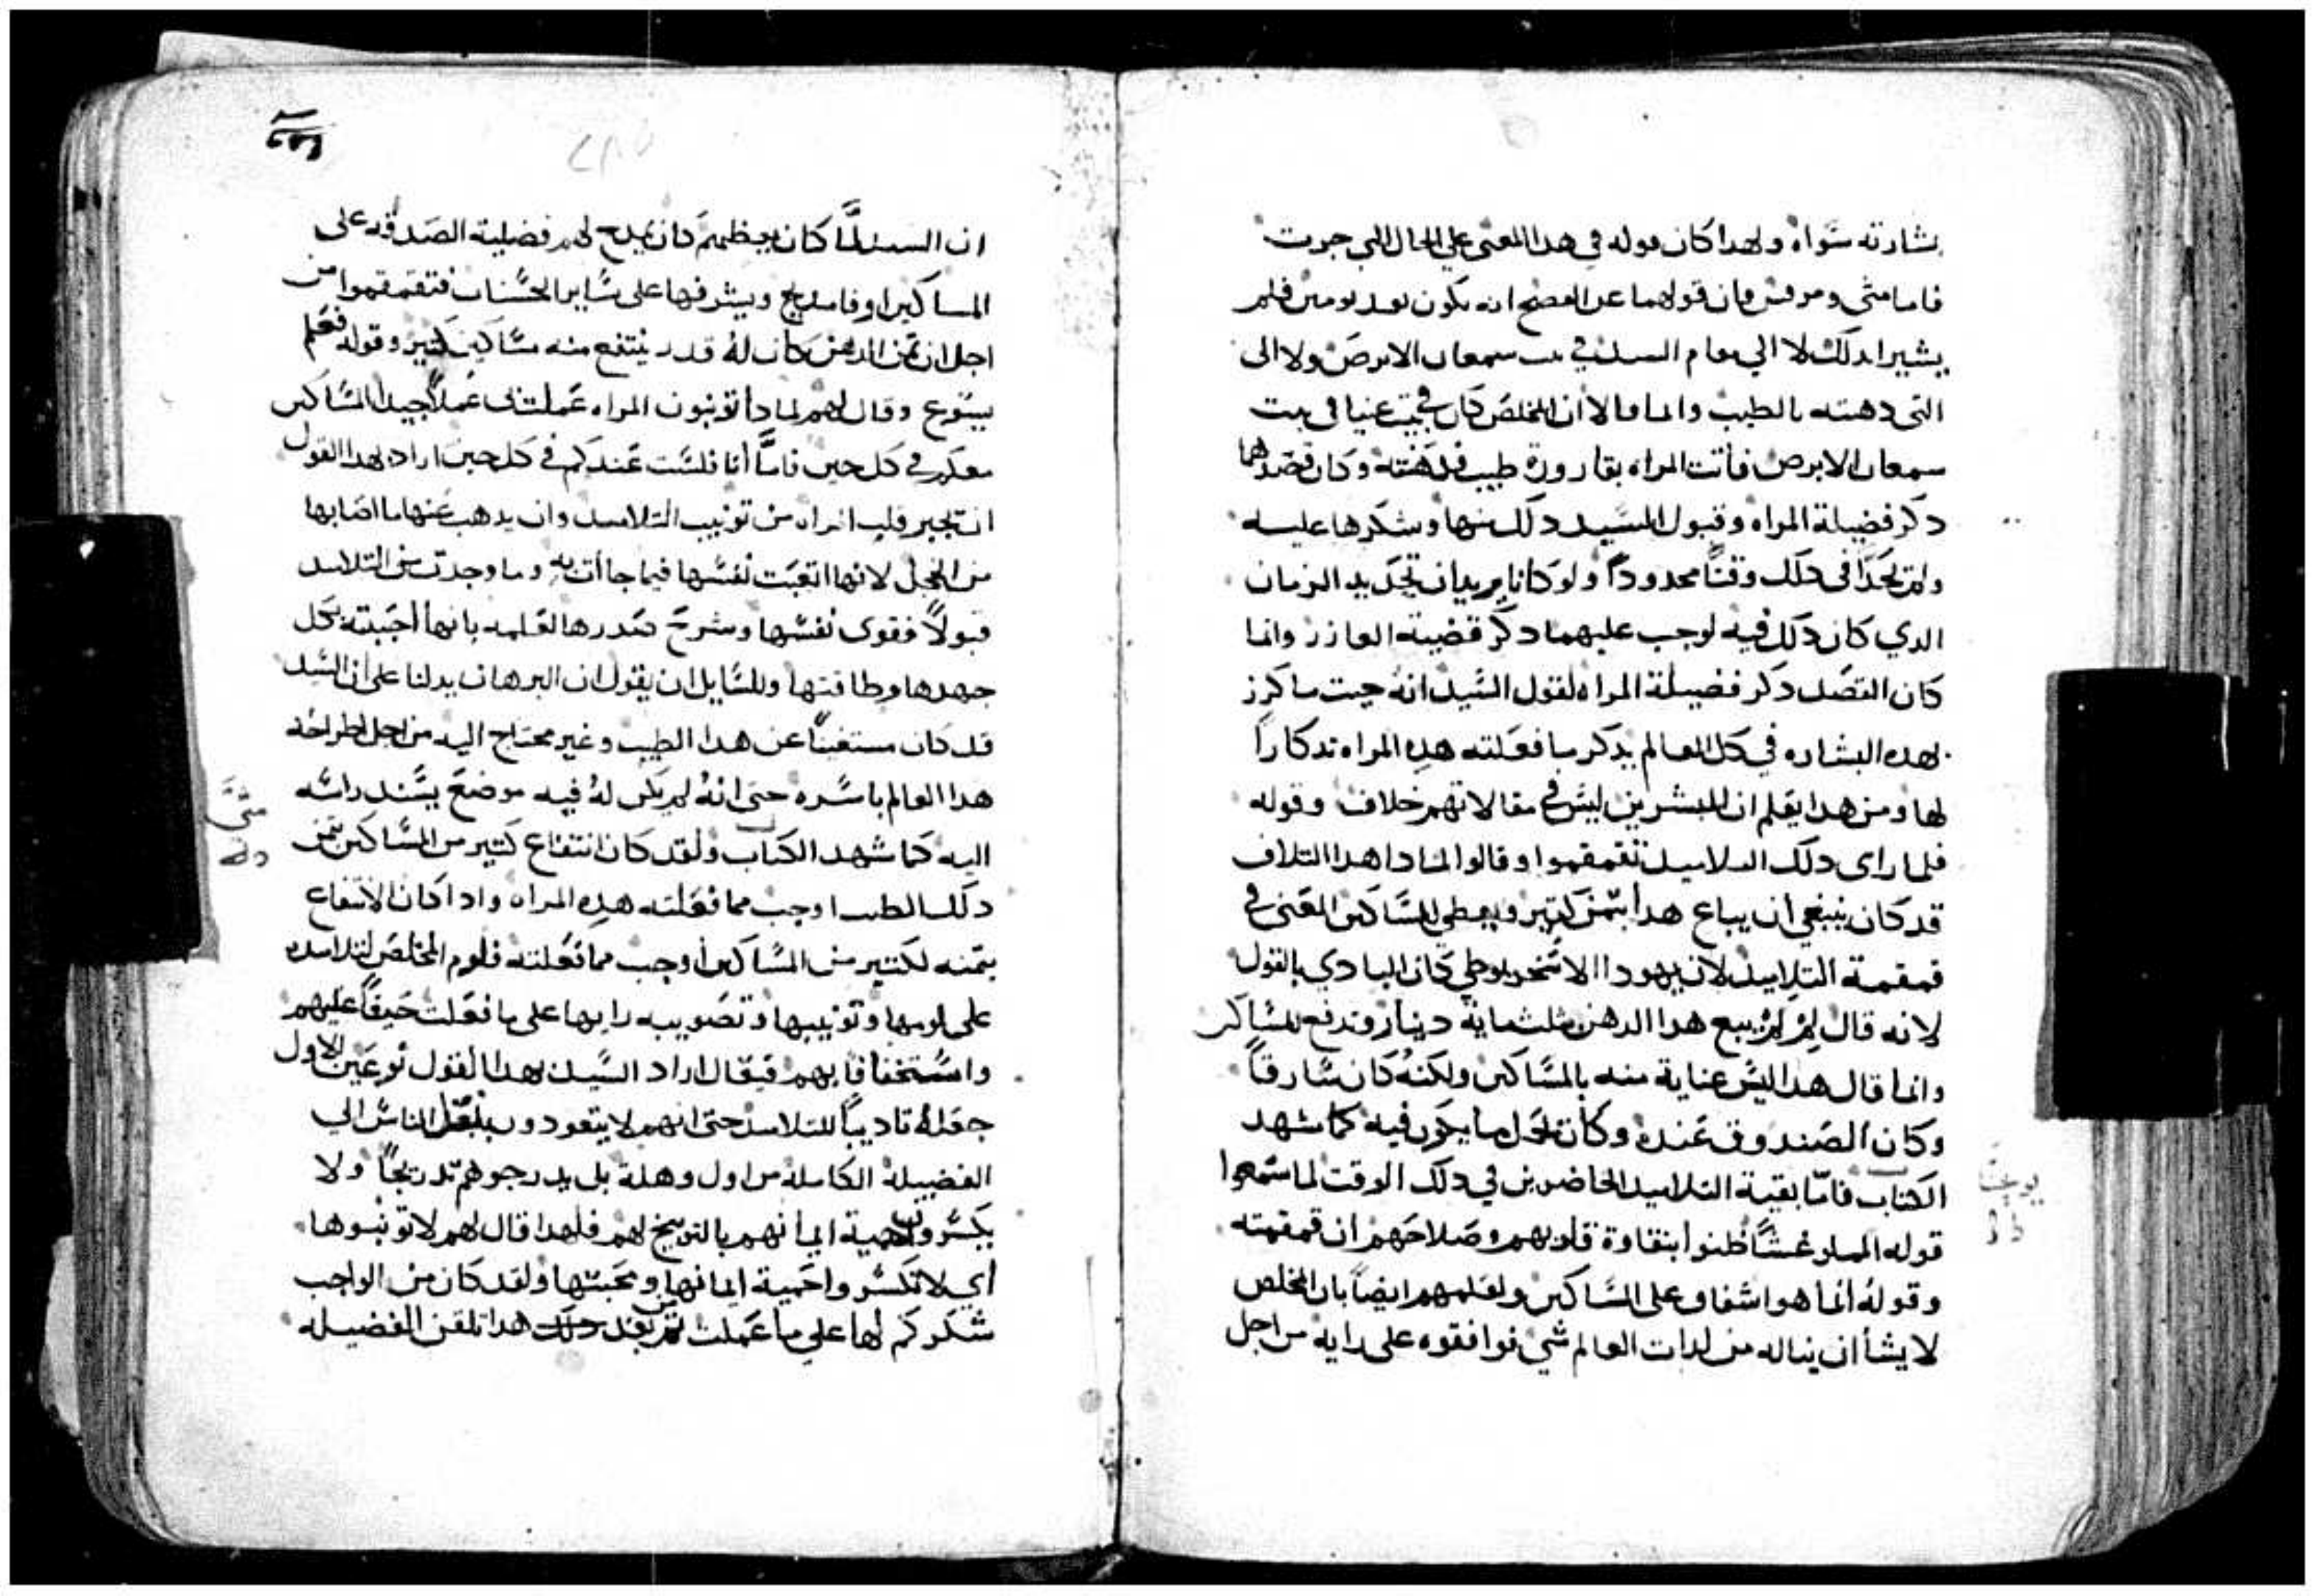 بشارته سواه ولهدا كان قوله في هدا المعنى علي الحال التي جرت
فاما متى ومرقس فان قولهما عن الفصح انه يكون بعد يومين فلم
يشيرا بدلك لا الي مقام السيد في بيت سمعان الابرص ولا الى
التى دهنته بالطيب وانما قالا ان المخلص كان في بيت عنيا في بيت
سمعان الابرص فاتت المراه بقارورة طيب فدهنته وكان قصدهما
دكر فضيلة المراه وقبول السيد دلك منها وشكرها عليه
ولم يحدا في دلك وقتًا محدودًا ولو كانا يريدان تحديد الزمان
الدي كان دلك فيه لوجب عليهما دكر قضية العازر وانما
كان القصد دكر فضيلة المراه لقول السيد انه حيت ما كرز
بهده البشاره في كل العالم يدكر ما فعلته هده المراه تدكارًا
لها ومن هدا يعلم ان المبشرين ليس في مقالاتهم خلاف وقوله
فلما راى دلك التلاميد تقمقموا وقالوا لمادا هدا التلاف
قد كان ينبغي ان يباع هدا بتمن كتير ويعطي للمساكين المعنى في
قمقمة التلاميد لان يهودا الاسخريوطي كان البادي بالقول
لانه قال لم لم يبع هدا الدهن بثلثماية دينار وتدفع للمساكين
وانما قال هدا ليس عناية منه بالمساكين ولكنه كان سارقًا
وكان الصندوق عنده وكان يحمل ما يكون فيه كما شهد
الكتاب فامّا بقية التلاميد الحاضرين في دلك الوقت لما سمعوا
قوله المملو غشًا ظنوا بنقاوة قلوبهم وصلاحهم ان قمقمته
وقوله انما هو اشفاق على المساكين ولعلمهم ايضًا بان المخلص
لا يشا ان يناله من لدات العالم شي فوافقوه على رايه من اجل
يوحنا
ان السيد لمّا كان يعظهم كان يمدح لهم فضيلة الصدقه على
المساكين اوفا مديح ويشرفها على ساير الحسنات فتقمقموا من
اجل ان تمن الدهن كان له قدر ينتفع منه مساكين كتير وقوله فعلم
يسوع وقال لهم لمادا تونبون المراه عملت بى عملًا جيدًا المساكين
معكم في كل حين فامّا أنا فلست عندكم في كل حين اراد بهدا القول
ان يجبر قلب المراه من تونيب التلاميد وان يدهب عنها ما اصابها
من الخجل لانها اتعبت نفسها فيما جاأت به وما وجدت من التلاميد
قبولًا فقوى نفسها وشرح صدرها لعلمه بانها أحبته بكل
جهدها وطاقتها وللسايل ان يقول ان البرهان يدلنا على ان السيد
قد كان مستغنيًا عن هدا الطيب وغير محتاج اليه من اجل اطراحه
هدا العالم باسره حتى انهُ لم يكن لهُ فيه موضع يسند راسه
اليه كما شهد الكتاب ولقد كان انتفاع كتير من المساكين بتمن
دلك الطيب اوجب مما فعلته هده المراه وادا كان الانتفاع
بتمنه لكتير من المساكين أوجب مما فعلته فلوم المخلص لتلاميده
على لومها وتونيبها وتصويبه رايها على ما فعلت حيفًا عليهم
واستخفافًا بهم فيقال اراد السيد بهدا القول نوعين الاول
جعلهُ تاديبًا للتلاميد حتى انهم لا يتعودون بنقل الناس الي
الفضيلة الكاملة من اول وهلة بل يدرجوهم تدريجًا ولا
يكسرون حمية ايمانهم بالتوبيخ لهم فلهدا قال لهم لا تونبوها
أي لا تكسروا حمية ايمانها ومحبتها ولقد كان من الواجب
شكركم لها علي ما عملت تم من بعد دلك هدا تلقن الفضيله
متى